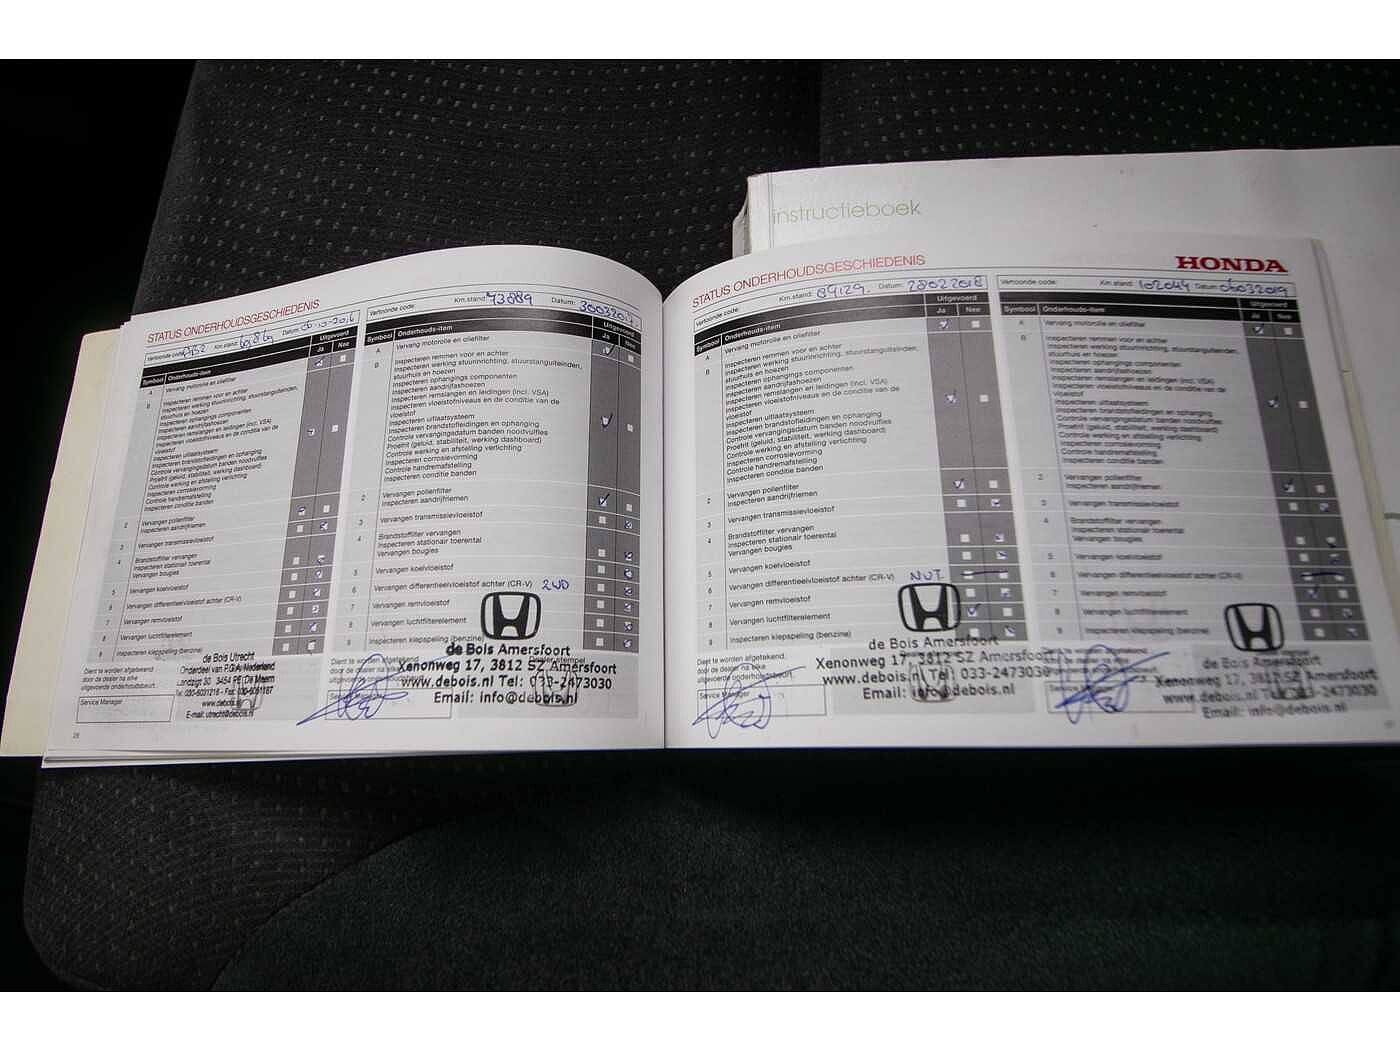 instructieboek
STATUS ONDERHOUDSGESCHIEDENIS
Vertoonde code: Km.stand: Datum:
Uitgevoerd
Symbool Onderhouds-item Ja Nee
A Vervang motorolie en oliefilter
B Inspecteren remmen voor en achter
Inspecteren werking stuurinrichting, stuurstanguiteinden,
stuurhuis en hoezen
Inspecteren ophangings componenten
Inspecteren aandrijfashoezen
Inspecteren remslangen en leidingen (incl. VSA)
Inspecteren vloeistofniveaus en de conditie van de
vloeistof
Inspecteren uitlaatsysteem
Inspecteren brandstofleidingen en ophanging
Controle vervangingsdatum banden noodvulfles
Proefrit (geluid, stabiliteit, werking dashboard)
Controle werking en afstelling verlichting
Inspecteren corrosievorming
Controle handremafstelling
Inspecteren conditie banden
2 Vervangen pollenfilter
Inspecteren aandrijfriemen
3 Vervangen transmissievloeistof
4 Brandstoffilter vervangen
Inspecteren stationair toerental
Vervangen bougies
5 Vervangen koelvloeistof
6 Vervangen differentieelvloeistof achter (CR-V)
7 Vervangen remvloeistof
8 Vervangen luchtfilterelement
9 Inspecteren klepspeling (benzine)
Dient te worden afgetekend
door de dealer na elke
uitgevoerde onderhoudsbeurt.
Service Manager
de Bois Utrecht
Onderdeel van PGA Nederland
Landzigt 30 3454 PE De Meern
www.debois.nl
E-mail: utrecht@debois.nl
28
Vertoonde code: Km.stand: 73889 Datum:
Uitgevoerd
Symbool Onderhouds-item Ja Nee
A Vervang motorolie en oliefilter
B Inspecteren remmen voor en achter
Inspecteren werking stuurinrichting, stuurstanguiteinden,
stuurhuis en hoezen
Inspecteren ophangings componenten
Inspecteren aandrijfashoezen
Inspecteren remslangen en leidingen (incl. VSA)
Inspecteren vloeistofniveaus en de conditie van de
vloeistof
Inspecteren uitlaatsysteem
Inspecteren brandstofleidingen en ophanging
Controle vervangingsdatum banden noodvulfles
Proefrit (geluid, stabiliteit, werking dashboard)
Controle werking en afstelling verlichting
Inspecteren corrosievorming
Controle handremafstelling
Inspecteren conditie banden
2 Vervangen pollenfilter
Inspecteren aandrijfriemen
3 Vervangen transmissievloeistof
4 Brandstoffilter vervangen
Inspecteren stationair toerental
Vervangen bougies
5 Vervangen koelvloeistof
6 Vervangen differentieelvloeistof achter (CR-V) 2WD
7 Vervangen remvloeistof
8 Vervangen luchtfilterelement
9 Inspecteren klepspeling (benzine)
Dient te worden afgetekend
door de dealer na elke
de Bois Amersfoort
Xenonweg 17, 3812 SZ Amersfoort
www.debois.nl Tel: 033-2473030
Email: info@debois.nl
STATUS ONDERHOUDSGESCHIEDENIS
HONDA
Vertoonde code: Km.stand: 89129. Datum: 28022018
Uitgevoerd
Symbool Onderhouds-item Ja Nee
A Vervang motorolie en oliefilter
B Inspecteren remmen voor en achter
Inspecteren werking stuurinrichting, stuurstanguiteinden,
stuurhuis en hoezen
Inspecteren ophangings componenten
Inspecteren aandrijfashoezen
Inspecteren remslangen en leidingen (incl. VSA)
Inspecteren vloeistofniveaus en de conditie van de
vloeistof
Inspecteren uitlaatsysteem
Inspecteren brandstofleidingen en ophanging
Controle vervangingsdatum banden noodvulfles
Proefrit (geluid, stabiliteit, werking dashboard)
Controle werking en afstelling verlichting
Inspecteren corrosievorming
Controle handremafstelling
Inspecteren conditie banden
2 Vervangen pollenfilter
Inspecteren aandrijfriemen
3 Vervangen transmissievloeistof
4 Brandstoffilter vervangen
Inspecteren stationair toerental
Vervangen bougies
5 Vervangen koelvloeistof
6 Vervangen differentieelvloeistof achter (CR-V)
7 Vervangen remvloeistof
8 Vervangen luchtfilterelement
9 Inspecteren klepspeling (benzine)
Dient te worden afgetekend
door de dealer na elke
uitgevoerde onderhoudsbeurt.
Service Manager
de Bois Amersfoort
Xenonweg 17, 3812 SZ Amersfoort
www.debois.nl Tel: 033-2473030
Email: info@debois.nl
Vertoonde code: Km.stand: 102044 Datum: 06032019
Uitgevoerd
Symbool Onderhouds-item Ja Nee
A Vervang motorolie en oliefilter
B Inspecteren remmen voor en achter
Inspecteren werking stuurinrichting, stuurstanguiteinden,
stuurhuis en hoezen
Inspecteren ophangings componenten
Inspecteren aandrijfashoezen
Inspecteren remslangen en leidingen (incl. VSA)
Inspecteren vloeistofniveaus en de conditie van de
vloeistof
Inspecteren uitlaatsysteem
Inspecteren brandstofleidingen en ophanging
Controle vervangingsdatum banden noodvulfles
Proefrit (geluid, stabiliteit, werking dashboard)
Controle werking en afstelling verlichting
Inspecteren corrosievorming
Controle handremafstelling
Inspecteren conditie banden
2 Vervangen pollenfilter
Inspecteren aandrijfriemen
3 Vervangen transmissievloeistof
4 Brandstoffilter vervangen
Inspecteren stationair toerental
Vervangen bougies
5 Vervangen koelvloeistof
6 Vervangen differentieelvloeistof achter (CR-V)
7 Vervangen remvloeistof
8 Vervangen luchtfilterelement
9 Inspecteren klepspeling (benzine)
de Bois Amersfoort
Xenonweg 17, 3812 SZ Amersfoort
www.debois.nl Tel: 033-2473030
Email: info@debois.nl